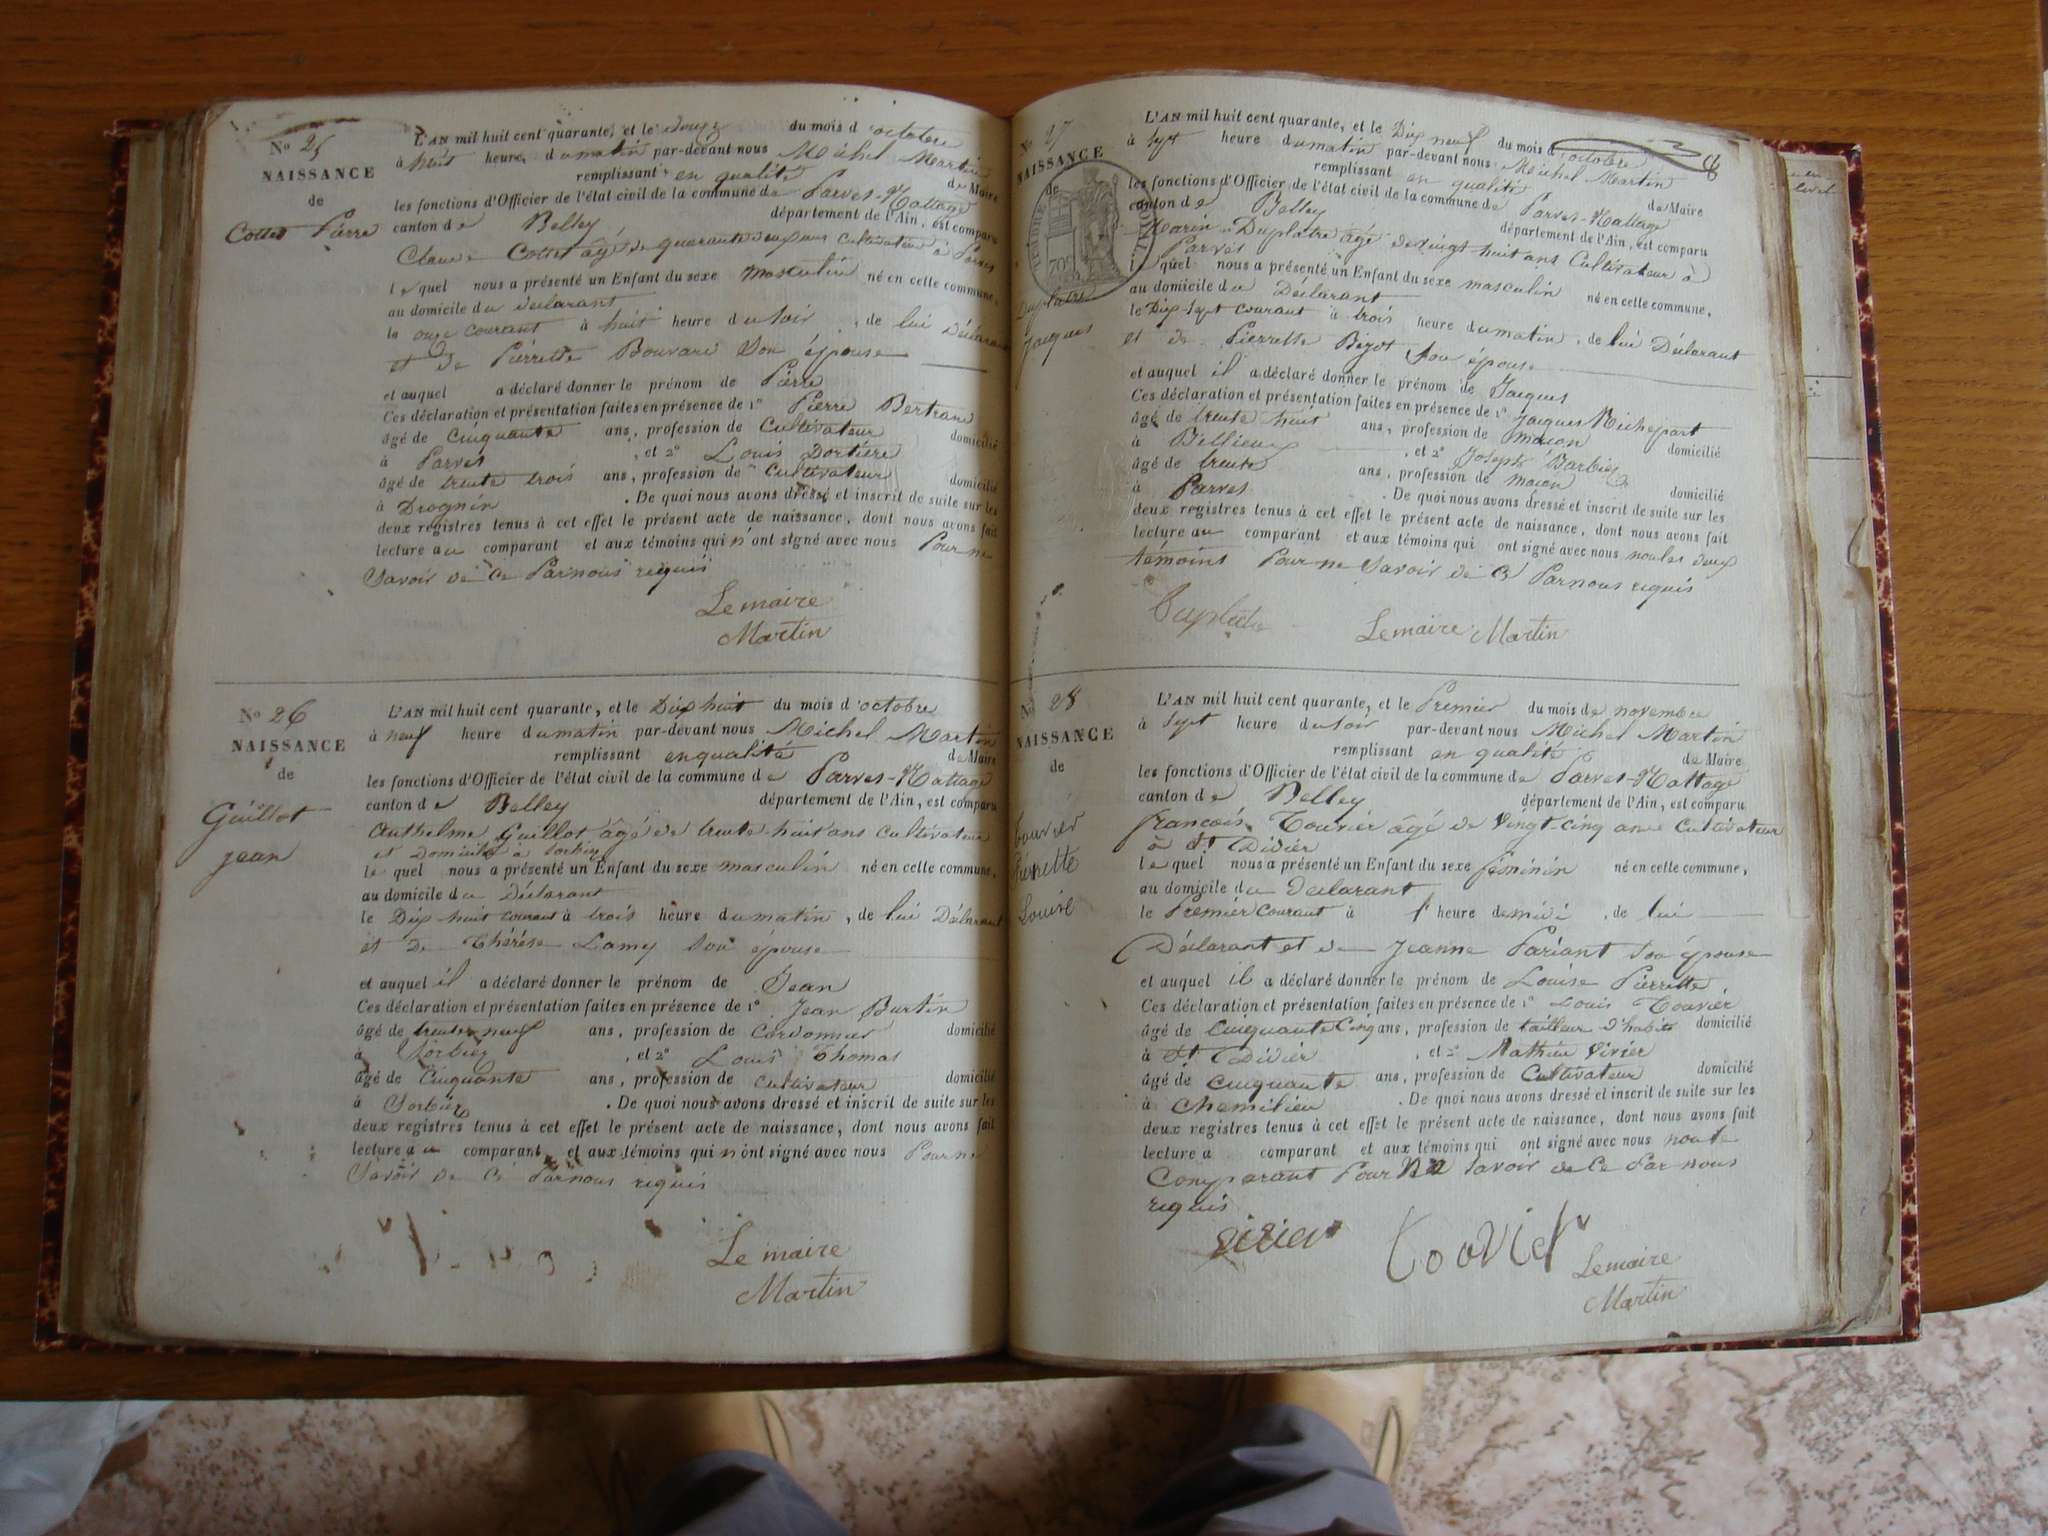 N° 25
NAISSANCE
de
Cottet Pierre
L'AN mil huit cent quarante, et le douze du mois d'octobre
à huit heure du matin par-devant nous Michel Martin
remplissant en qualité de Maire
les fonctions d'Officier de l'état civil de la commune de Parves-Nattage
canton de Belley département de l'Ain, est comparu
Claude Cottet âgé de quarante deux ans Cultivateur à Parves
lequel nous a présenté un Enfant du sexe masculin né en cette commune,
au domicile du déclarant
le onze courant à huit heure du soir, de lui Déclarant
et de Pierrette Bouvard son épouse
et auquel a déclaré donner le prénom de Pierre
Ces déclaration et présentation faites en présence de 1° Pierre Bertrand
âgé de Cinquante ans, profession de Cultivateur domicilié
à Parves, et 2° Louis Dortière
âgé de trente trois ans, profession de Cultivateur domicilié
à Drognin. De quoi nous avons dressé et inscrit de suite sur les
deux registres tenus à cet effet le présent acte de naissance, dont nous avons fait
lecture au comparant et aux témoins qui n'ont signé avec nous Pour ne
Savoir de Ce Par nous requis
Le maire
Martin
N° 26
NAISSANCE
de
Guillot
jean
L'AN mil huit cent quarante, et le Dix huit du mois d'octobre
à neuf heure du matin par-devant nous Michel Martin
remplissant en qualité de Maire
les fonctions d'Officier de l'état civil de la commune de Parves-Nattage
canton de Belley département de l'Ain, est comparu
Anthelme Guillot âgé de trente huit ans Cultivateur
et Domicilié à Sorbier
lequel nous a présenté un Enfant du sexe masculin né en cette commune,
au domicile du Déclarant
le Dix huit courant à trois heure du matin, de lui Déclarant
et de Thérèse Lamy son épouse
et auquel il a déclaré donner le prénom de Jean
Ces déclaration et présentation faites en présence de 1° Jean Burtin
âgé de trente neuf ans, profession de Cordonnier domicilié
à Sorbier, et 2° Louis Thomas
âgé de Cinquante ans, profession de Cultivateur domicilié
à Sorbier. De quoi nous avons dressé et inscrit de suite sur les
deux registres tenus à cet effet le présent acte de naissance, dont nous avons fait
lecture au comparant et aux témoins qui n'ont signé avec nous Pour ne
Savoir de Ce Par nous requis
Le maire
Martin
N° 27
NAISSANCE
de
Duplatre
Jacques
L'AN mil huit cent quarante, et le Dix neuf du mois d'octobre
à sept heure du matin par-devant nous Michel Martin
remplissant en qualité de Maire
les fonctions d'Officier de l'état civil de la commune de Parves-Nattage
canton de Belley département de l'Ain, est comparu
Marin Duplatre âgé de vingt huit ans Cultivateur à
Parves
lequel nous a présenté un Enfant du sexe masculin né en cette commune,
au domicile du Déclarant
le Dix sept courant à trois heure du matin, de lui Déclarant
et de Pierrette Bizot son épouse
et auquel il a déclaré donner le prénom de Jacques
Ces déclaration et présentation faites en présence de 1° Jacques Richepart
âgé de trente huit ans, profession de maçon domicilié
à Billieu, et 2° Joseph Barbier
âgé de trente ans, profession de maçon domicilié
à Parves. De quoi nous avons dressé et inscrit de suite sur les
deux registres tenus à cet effet le présent acte de naissance, dont nous avons fait
lecture au comparant et aux témoins qui ont signé avec nous non les deux
témoins Pour ne Savoir de Ce Par nous requis
Duplatre Le maire Martin
N° 28
NAISSANCE
de
Touvier
Pierrette
Louise
L'AN mil huit cent quarante, et le Premier du mois de novembre
à Sept heure du soir par-devant nous Michel Martin
remplissant en qualité de Maire
les fonctions d'Officier de l'état civil de la commune de Parves-Nattage
canton de Belley département de l'Ain, est comparu
françois Touvier âgé de Vingt-Cinq ans Cultivateur
à St Didier
lequel nous a présenté un Enfant du sexe féminin né en cette commune,
au domicile du declarant
le Premier Courant à l'heure de midi, de lui
Déclarant et de Jeanne Pariant son épouse
et auquel il a déclaré donner le prénom de Louise Pierrette
Ces déclaration et présentation faites en présence de 1° Louis Touvier
âgé de Cinquante Cinq ans, profession de tailleur d'habits domicilié
à St Didier, et 2° Mathieu Vivier
âgé de Cinquante ans, profession de Cultivateur domicilié
à Chemilieu. De quoi nous avons dressé et inscrit de suite sur les
deux registres tenus à cet effet le présent acte de naissance, dont nous avons fait
lecture a comparant et aux témoins qui ont signé avec nous non le
Comparant Pour ne Savoir de Ce Par nous
requis
Vivier Toovier Le maire
Martin